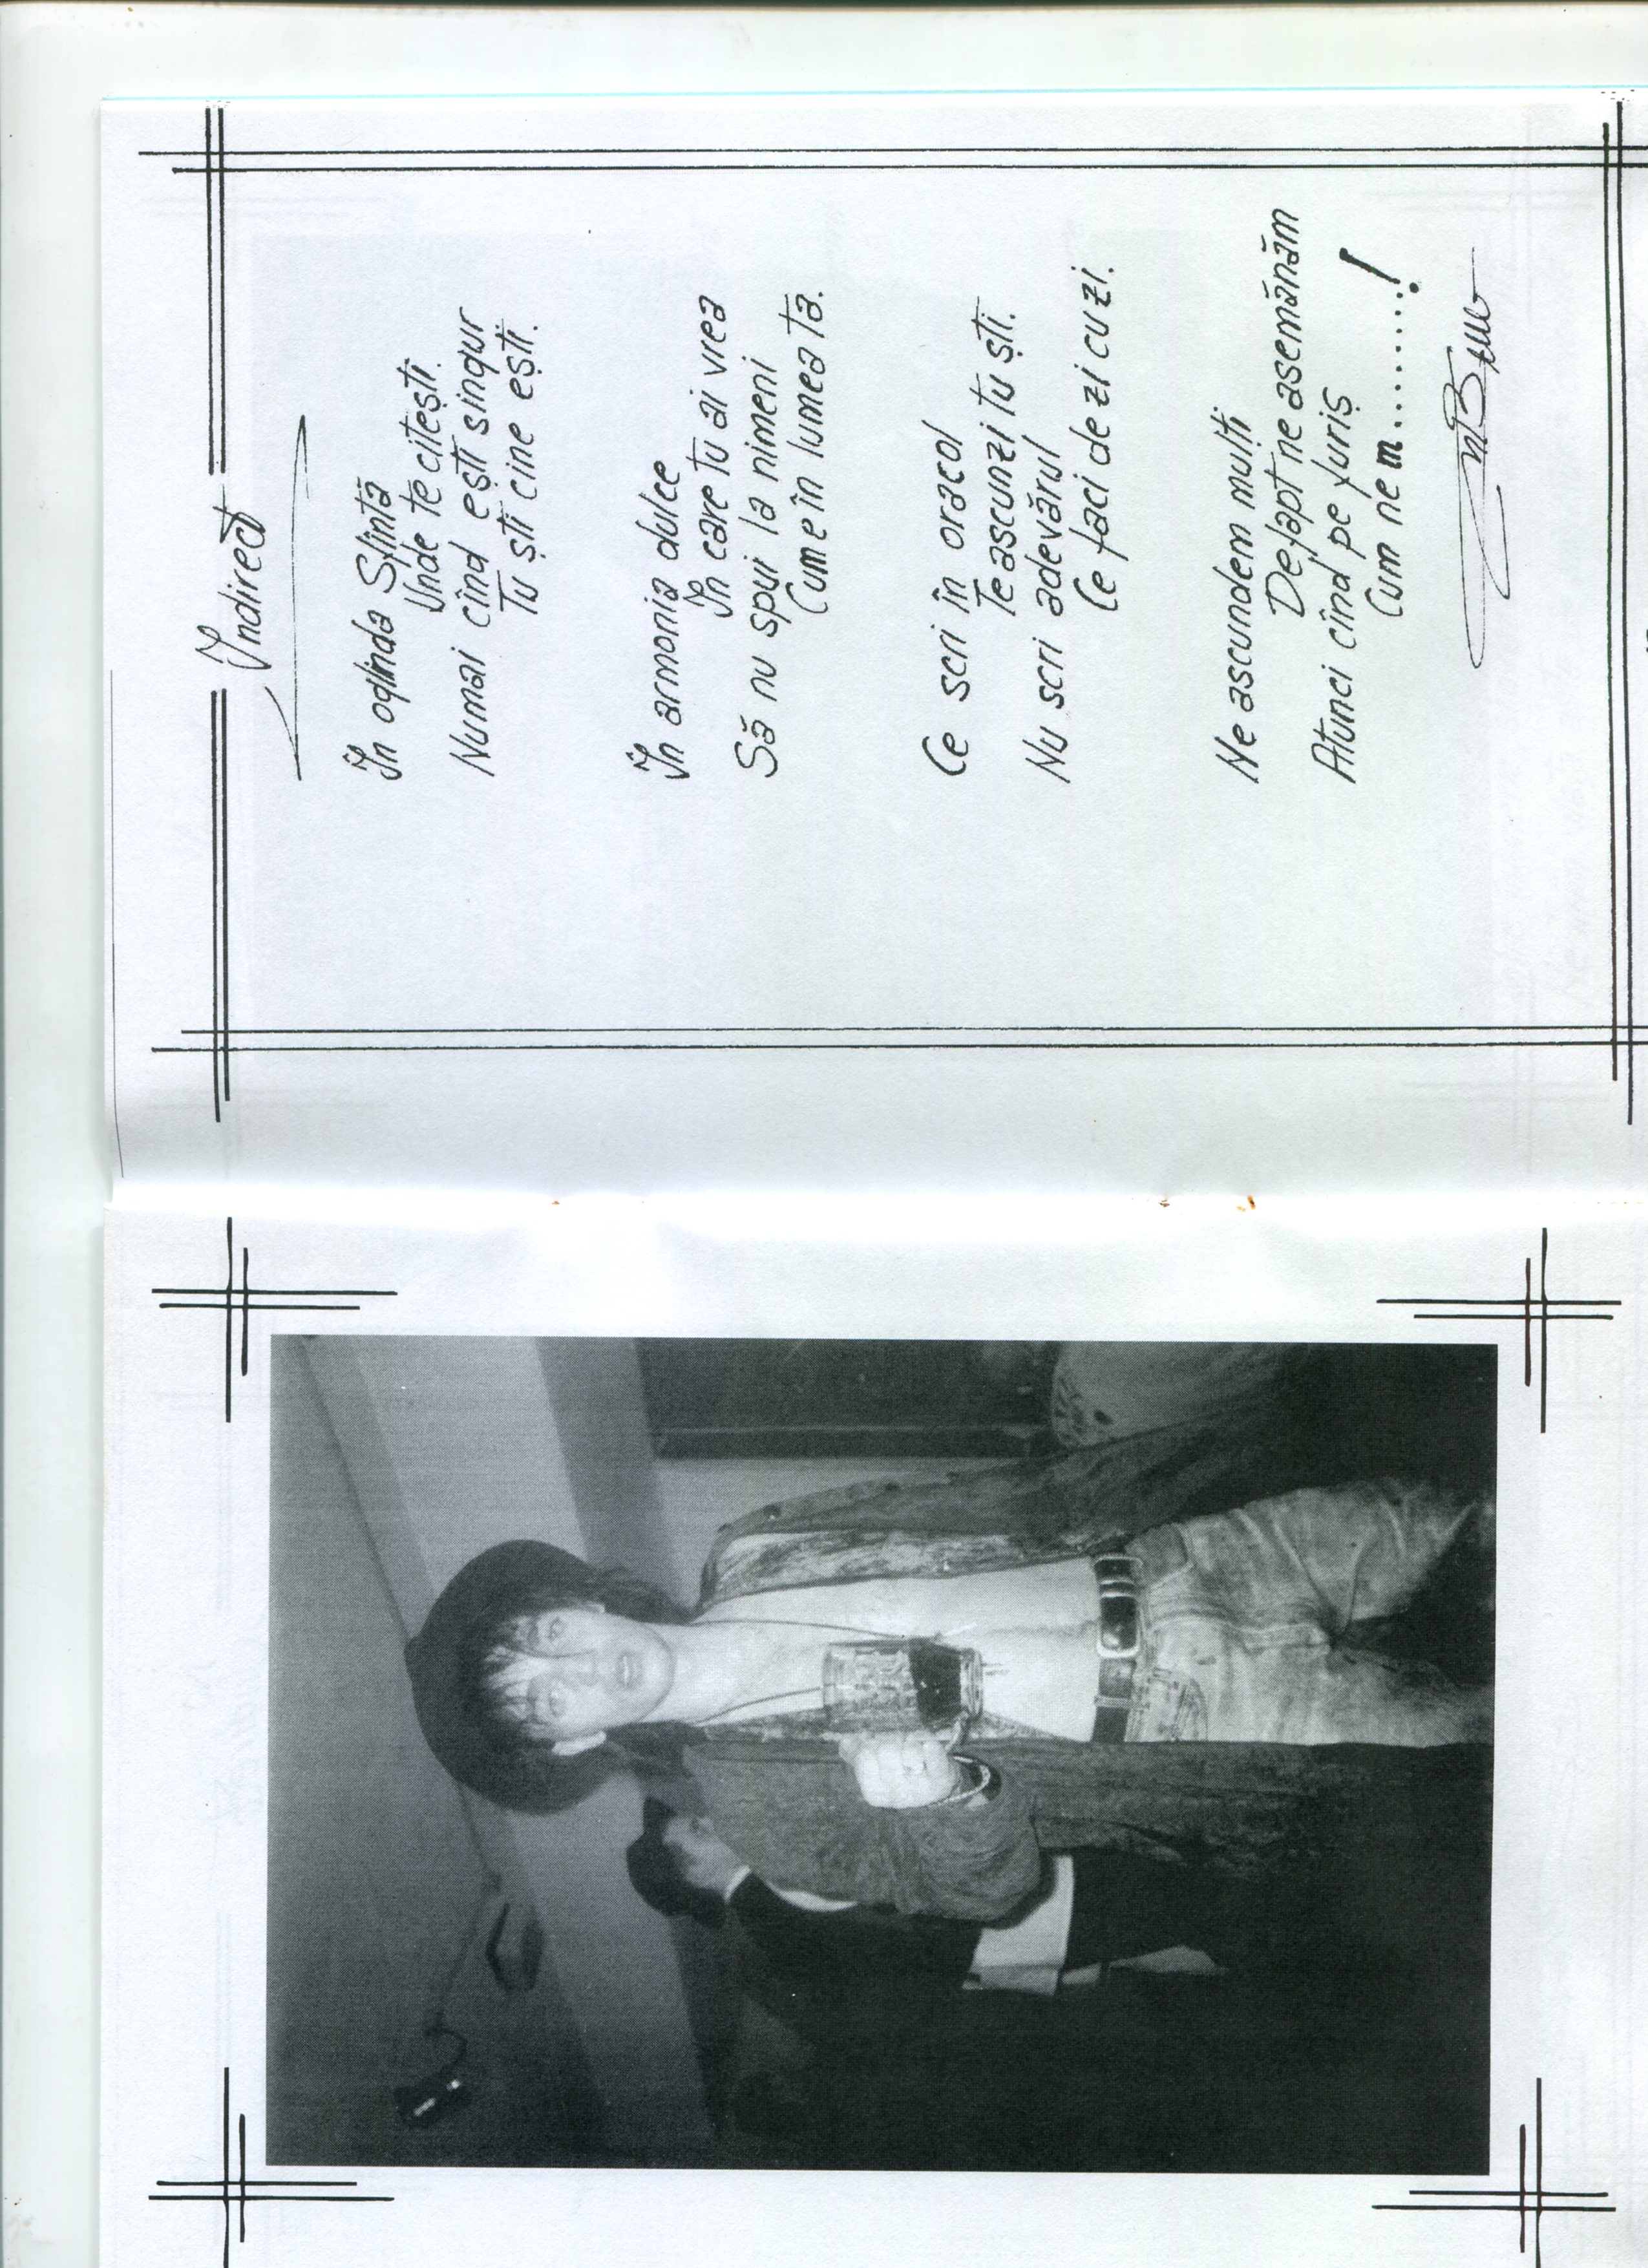 Indirect
În oglinda Sfîntă
Unde te citești.
Numai cînd ești singur
Tu ști cine ești.
În armonia dulce
În care tu ai vrea
Să nu spui la nimeni
Cum e în lumea ta.
Ce scri în oracol
Te ascunzi tu ști.
Nu scri adevărul
Ce faci de zi cu zi.
Ne ascundem mulți
Defapt ne asemănăm
Atunci cînd pe furiș
Cum ne m.........!